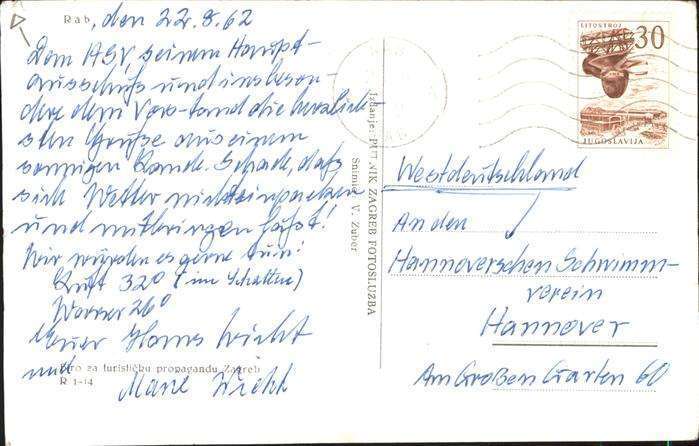 Rab, den 22.8.62
Dem ASV, seinem Haupt-
ausschuß und insbeson-
dere dem Vorstand die herzlich-
sten Grüße aus einem
sonnigen Lande. Schade, daß
sich Wetter nicht einpacken
und mitbringen läßt!
Wir würden es gerne tun!
Luft 32° (im Schatten)
Wasser 26°
Euer Hans
und
Biro za turističku propagandu Zagreb
R 1-14
Izdanje: PUTNIK ZAGREB FOTOSLUZBA
Snimio: V. Zuber
LITOSTROJ
30
JUGOSLAVIJA
Westdeutschland
An den
Hannoverschen Schwimm-
verein
Hannover
Am Großen Garten 60